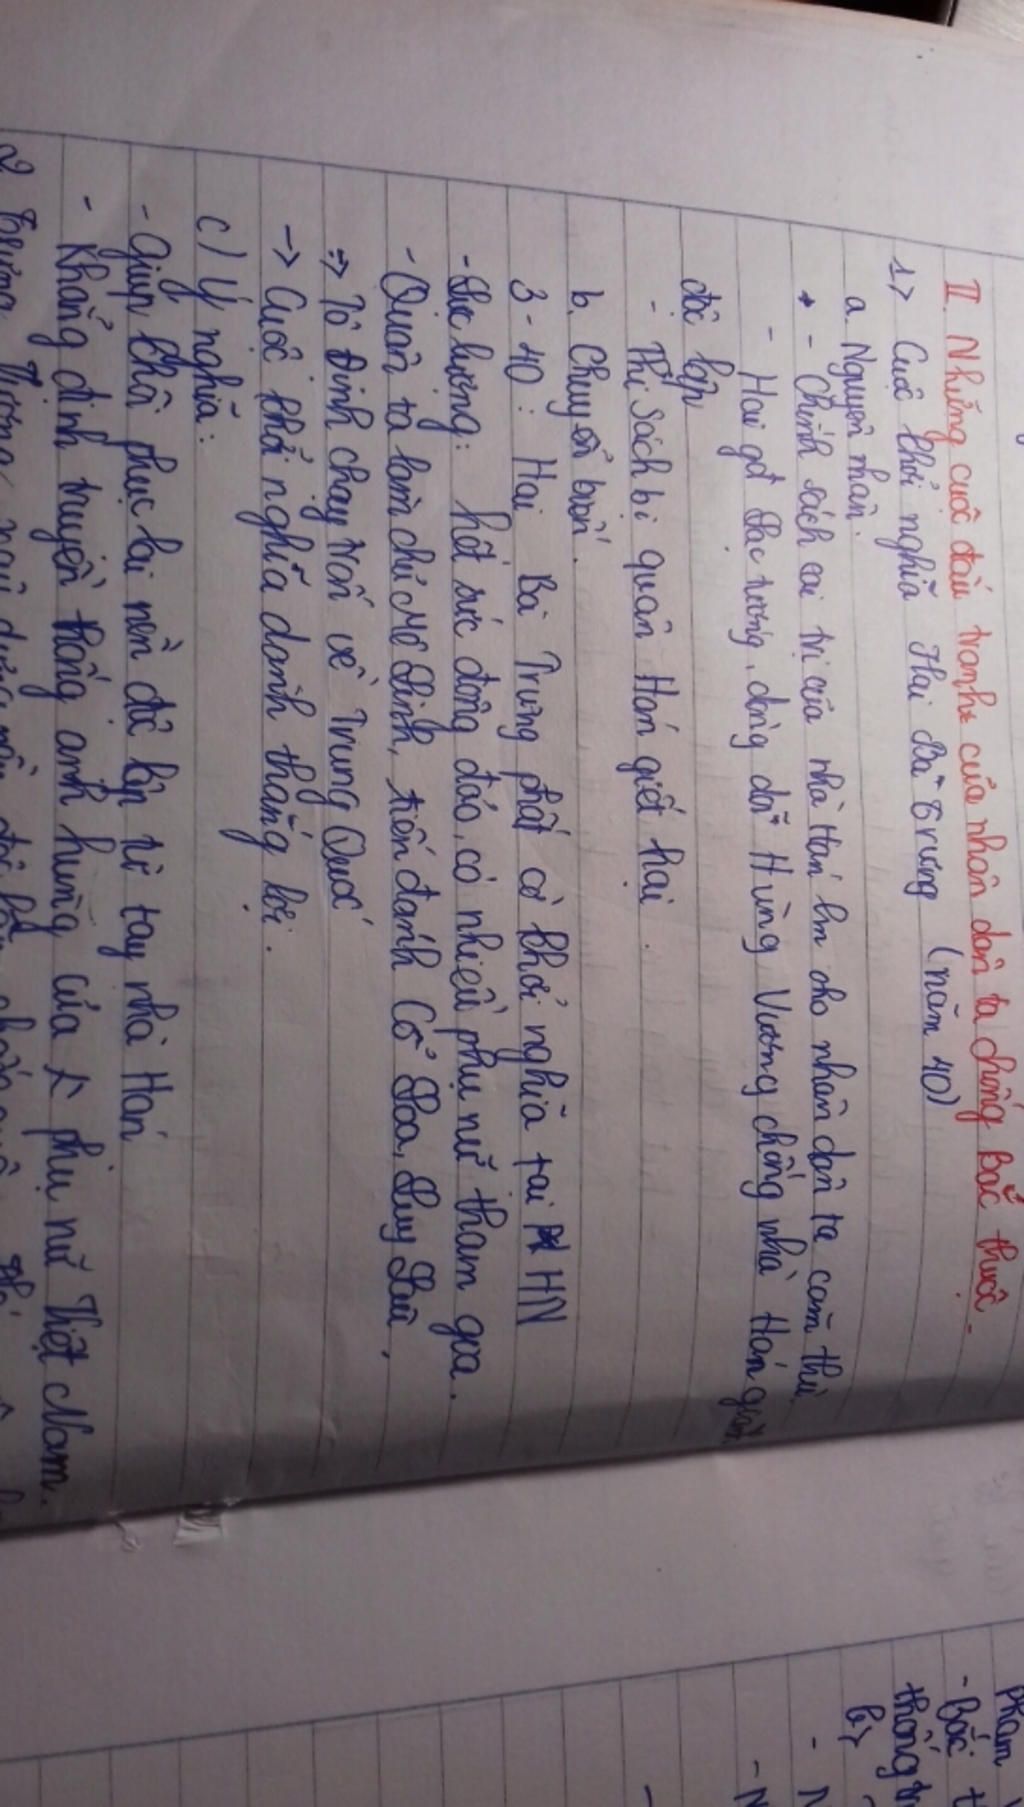 II. Những cuộc đấu tranh của nhân dân ta chống Bắc thuộc.
1> Cuộc khởi nghĩa Hai Bà Trưng (năm 40)
a. Nguyên nhân.
- Chính sách cai trị của nhà Hán làm cho nhân dân ta căm thù.
- Hai gđ Lạc tướng, dòng dõi Hùng Vương chống nhà Hán giành
độc lập
- Thi Sách bị quân Hán giết hại.
b. Chuyển biến.
3-40: Hai Bà Trưng phất cờ khởi nghĩa tại HN
- Lực lượng: hết sức đông đảo, có nhiều phụ nữ tham gia.
- Quân ta làm chủ Mê Linh, tiến đánh Cổ Loa, Luy Lâu,
=> Tô Định chạy trốn về Trung Quốc
-> Cuộc khởi nghĩa dành thắng lợi.
c) Ý nghĩa:
- Giúp khôi phục lại nền độc lập từ tay nhà Hán
- Khẳng định truyền thống anh hùng của phụ nữ Việt Nam.
2 Trưng Vương
phạm
- Bắc
thống
b>
- N
- N